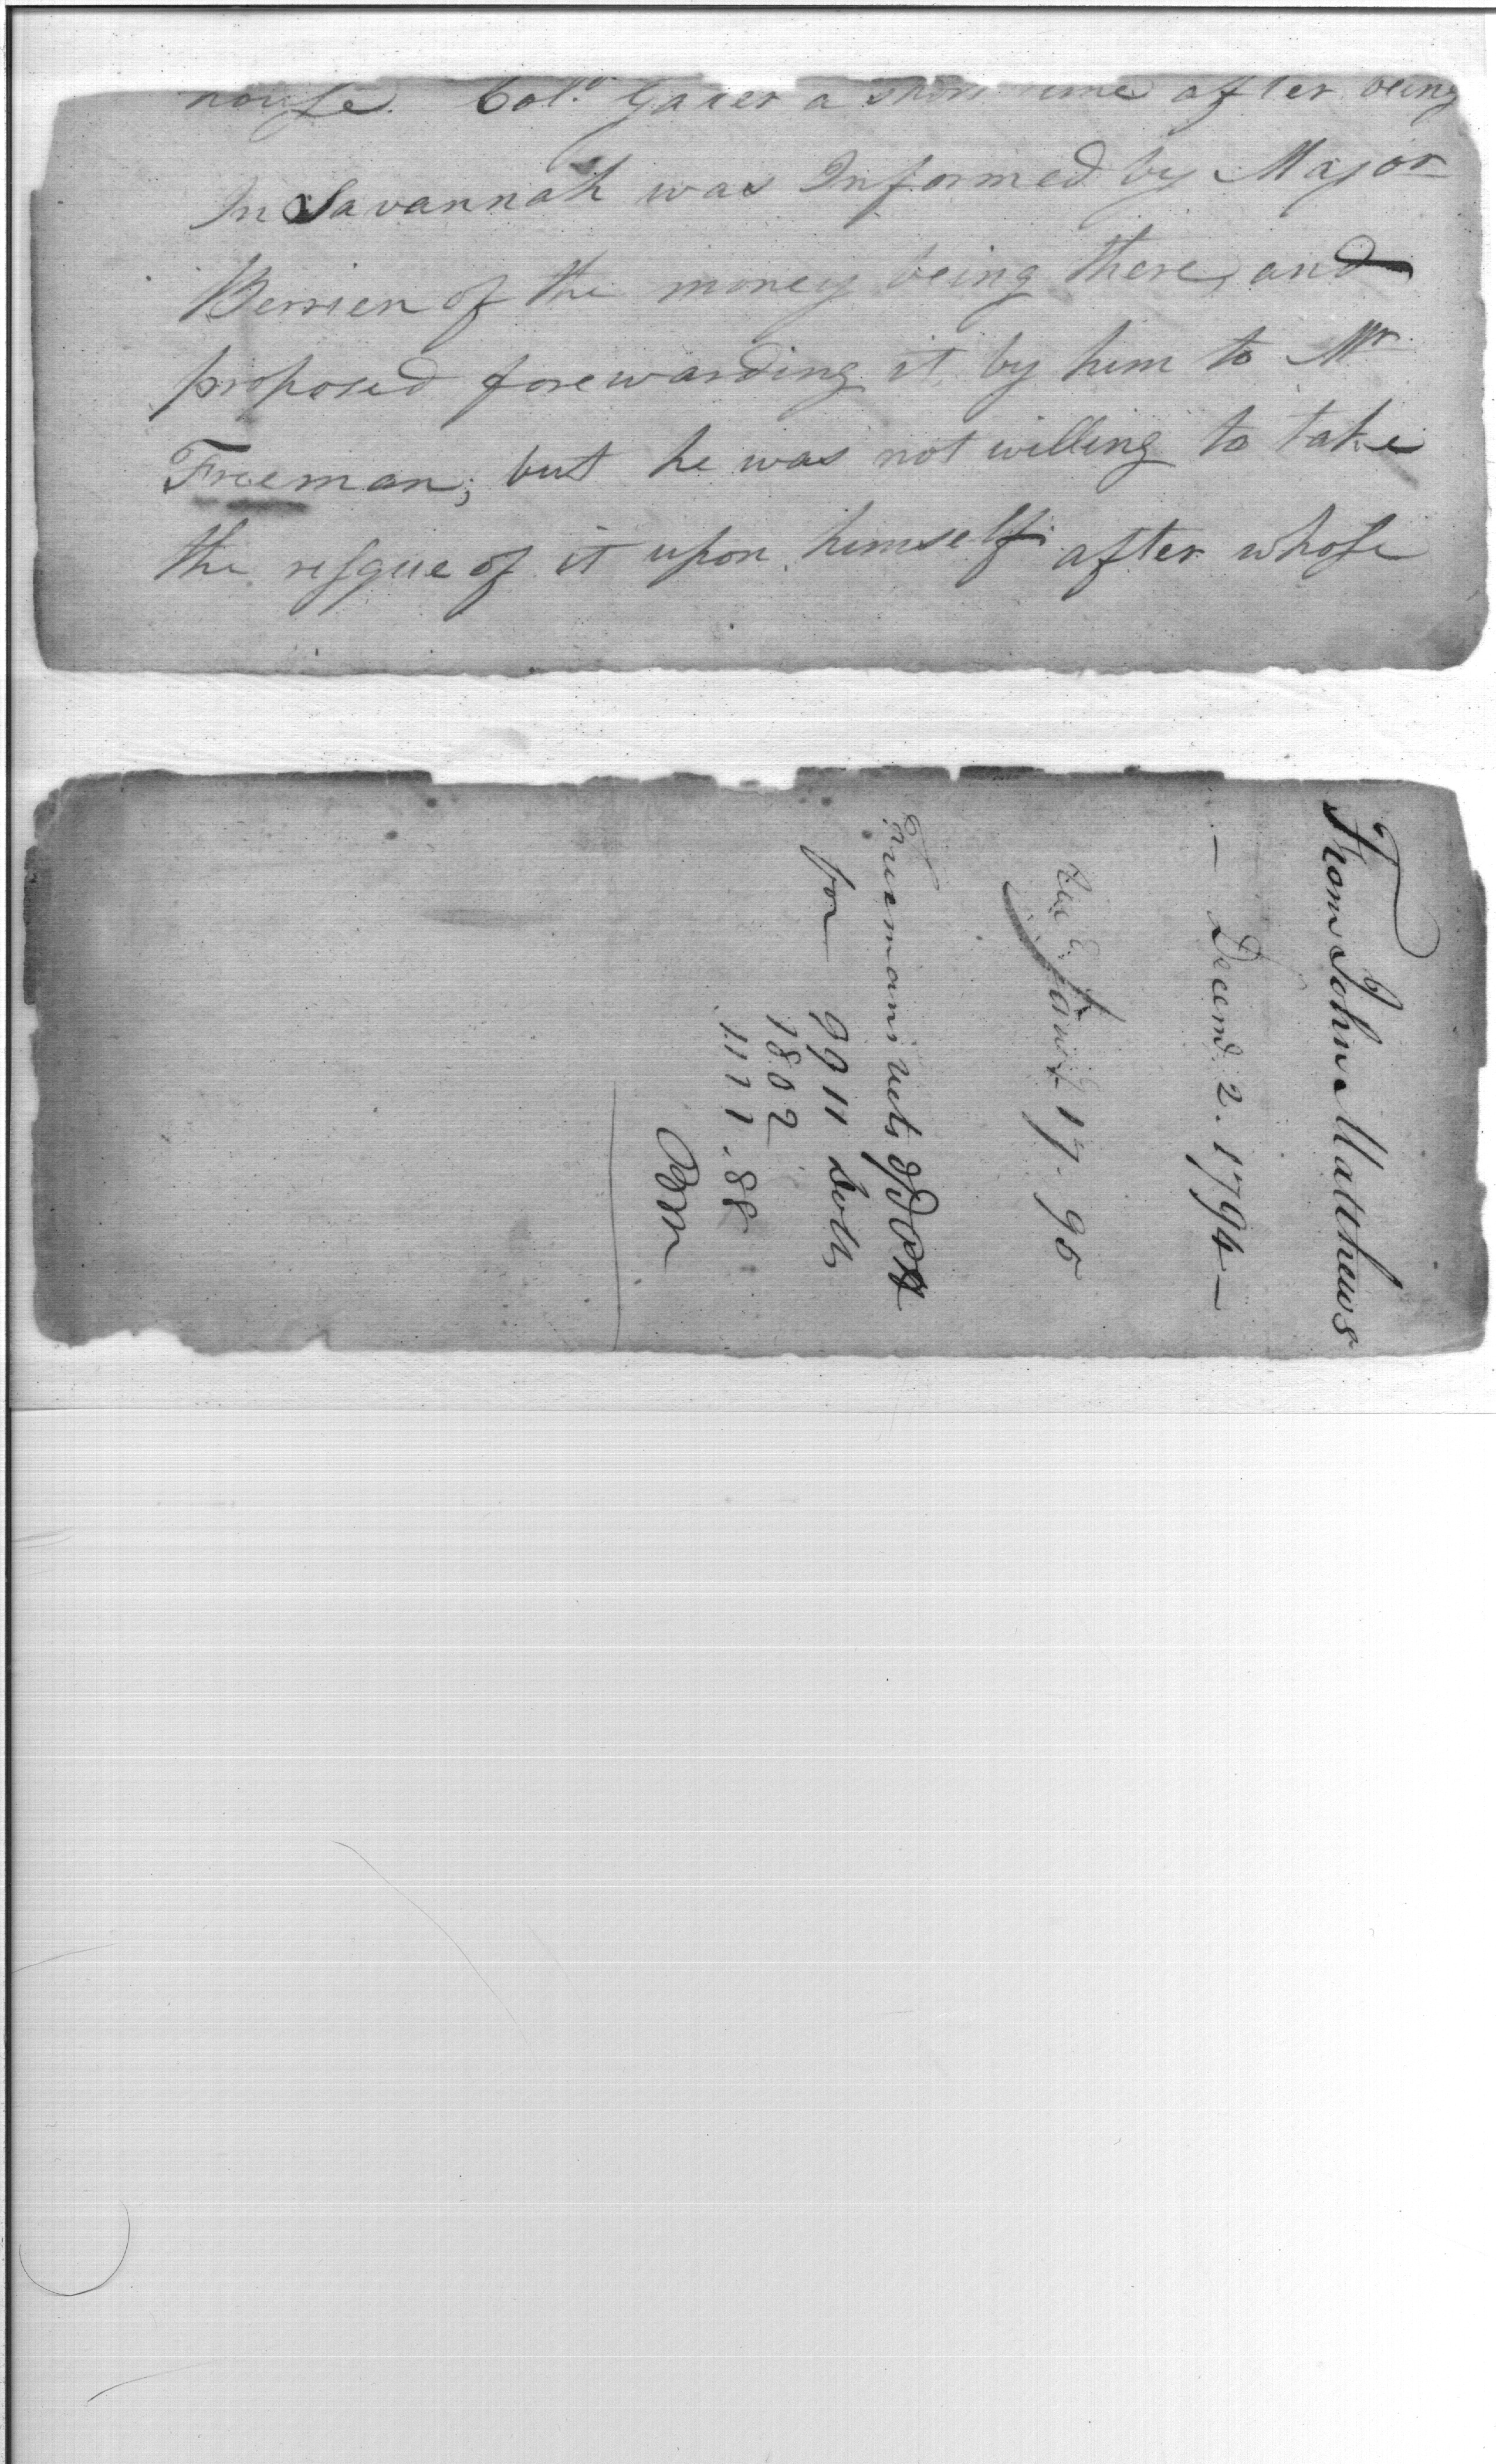 house. Colo. Gaither a short time after being
In Savannah was Informed by Major
Berrien of the money being there, and
proposed forewarding it by him to Mr
Freeman; but he was not willing to take
the resque of it upon himself; after whose
From John Matthews
— Decemd. 2. 1794 —
Jany 17. 95
Freemans
for 9911 dolls
1802
1111.88